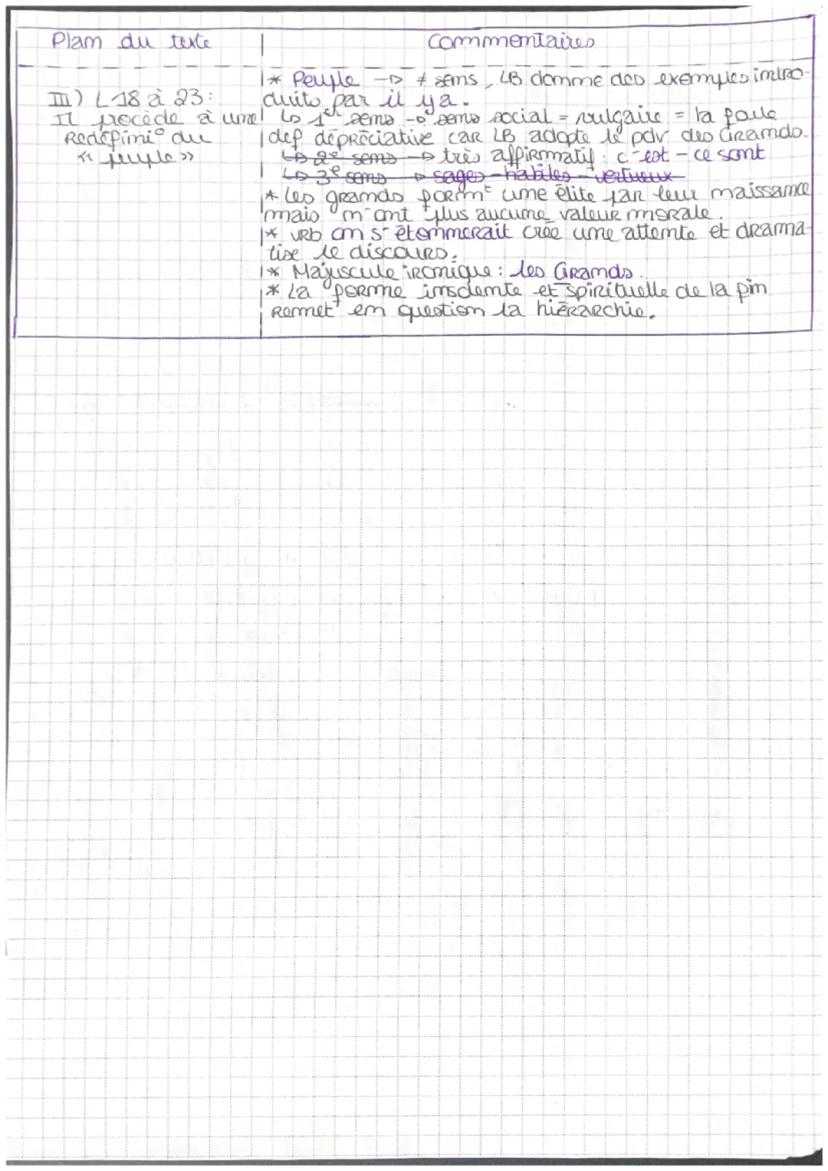 Plan du texte | Commentaires
III) L 18 à 23 :
Il procède à une
Redéfini° du
« peuple »
* Peuple → ≠ sens, LB donne des exemples intro-
duits par il y a.
↳ 1er sens → sens social = vulgaire = la foule
def dépréciative car LB adopte le pdv des Grands.
↳ 2e sens → très affirmatif : c'est - ce sont
↳ 3e sens → sages - habiles - vertueux
* Les grands formt une élite par leur naissance
mais n'ont plus aucune valeur morale.
* vrb on s'étonnerait crée une attente et drama-
tise le discours.
* Majuscule ironique : les Grands.
* La forme insolente et spirituelle de la fin
Remet en question la hiérarchie.